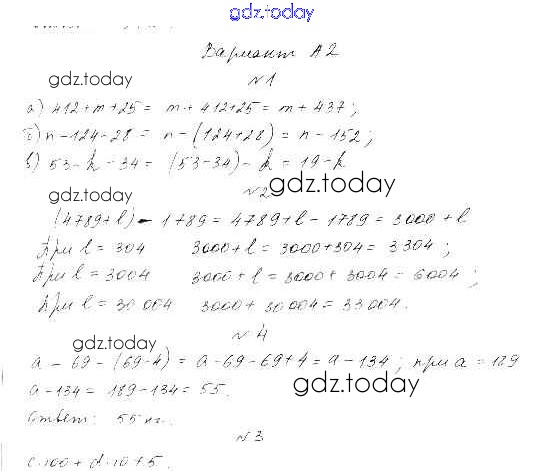 gdz.today
Вариант А2
gdz.today
№1
а) 412+m+25 = m+412+25 = m+437;
б) n-124-28 = n-(124+28) = n-152;
в) 53-k-34 = (53-34)-k = 19-k
gdz.today
gdz.today
№2
(4789+l)-1789 = 4789+l-1789 = 3000+l
При l=304 3000+l = 3000+304 = 3304;
При l=3004 3000+l = 3000+3004 = 6004;
При l=30004 3000+30004 = 33004.
№4
gdz.today
a-69-(69-4) = a-69-69+4 = a-134; при a=189
a-134 = 189-134 = 55.
gdz.today
Ответ: 55 кг.
№3
c·100+d·10+5.